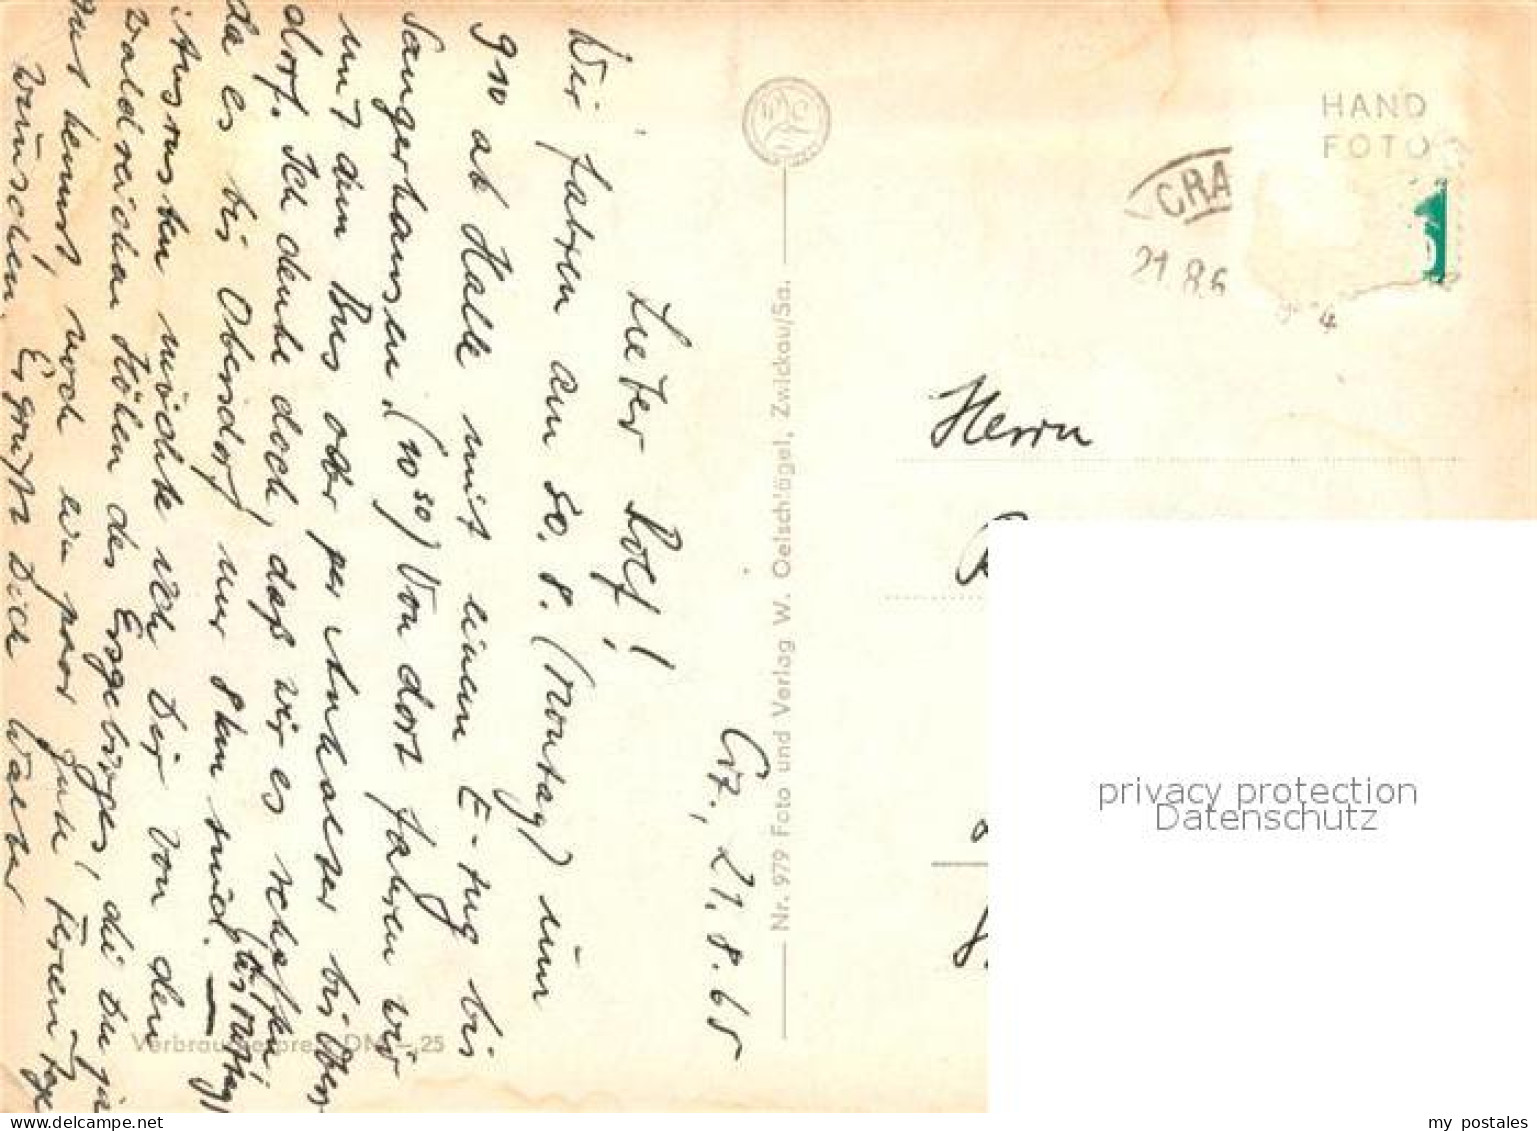 Crz., 21.8.65
Lieber Rolf!
Wir fahren am 30.8. (Montag) um
9 10 ab Halle mit einem E-Zug bis
Sangerhausen, (10 30) Von dort fahren wir
mit dem Bus oder per Anhalter bis Obers
dorf. Ich denke doch, daß wir es schaffen,
da es bis Obersdorf nur 8 km sind. —
Ausrasten möchte ich Dir von den
waldreichen Höhen des Erzgebirges, die Du ja
gut kennst, noch ein paar gute Ferientage
wünschen. Es grüßt Dich Walter
Nr. 979 Foto und Verlag W. Oelschlägel, Zwickau/Sa.
Verbraucherpreis DM -,25
HAND
FOTO
CRA
21.8.6
Herrn
privacy protection
Datenschutz
my_postales